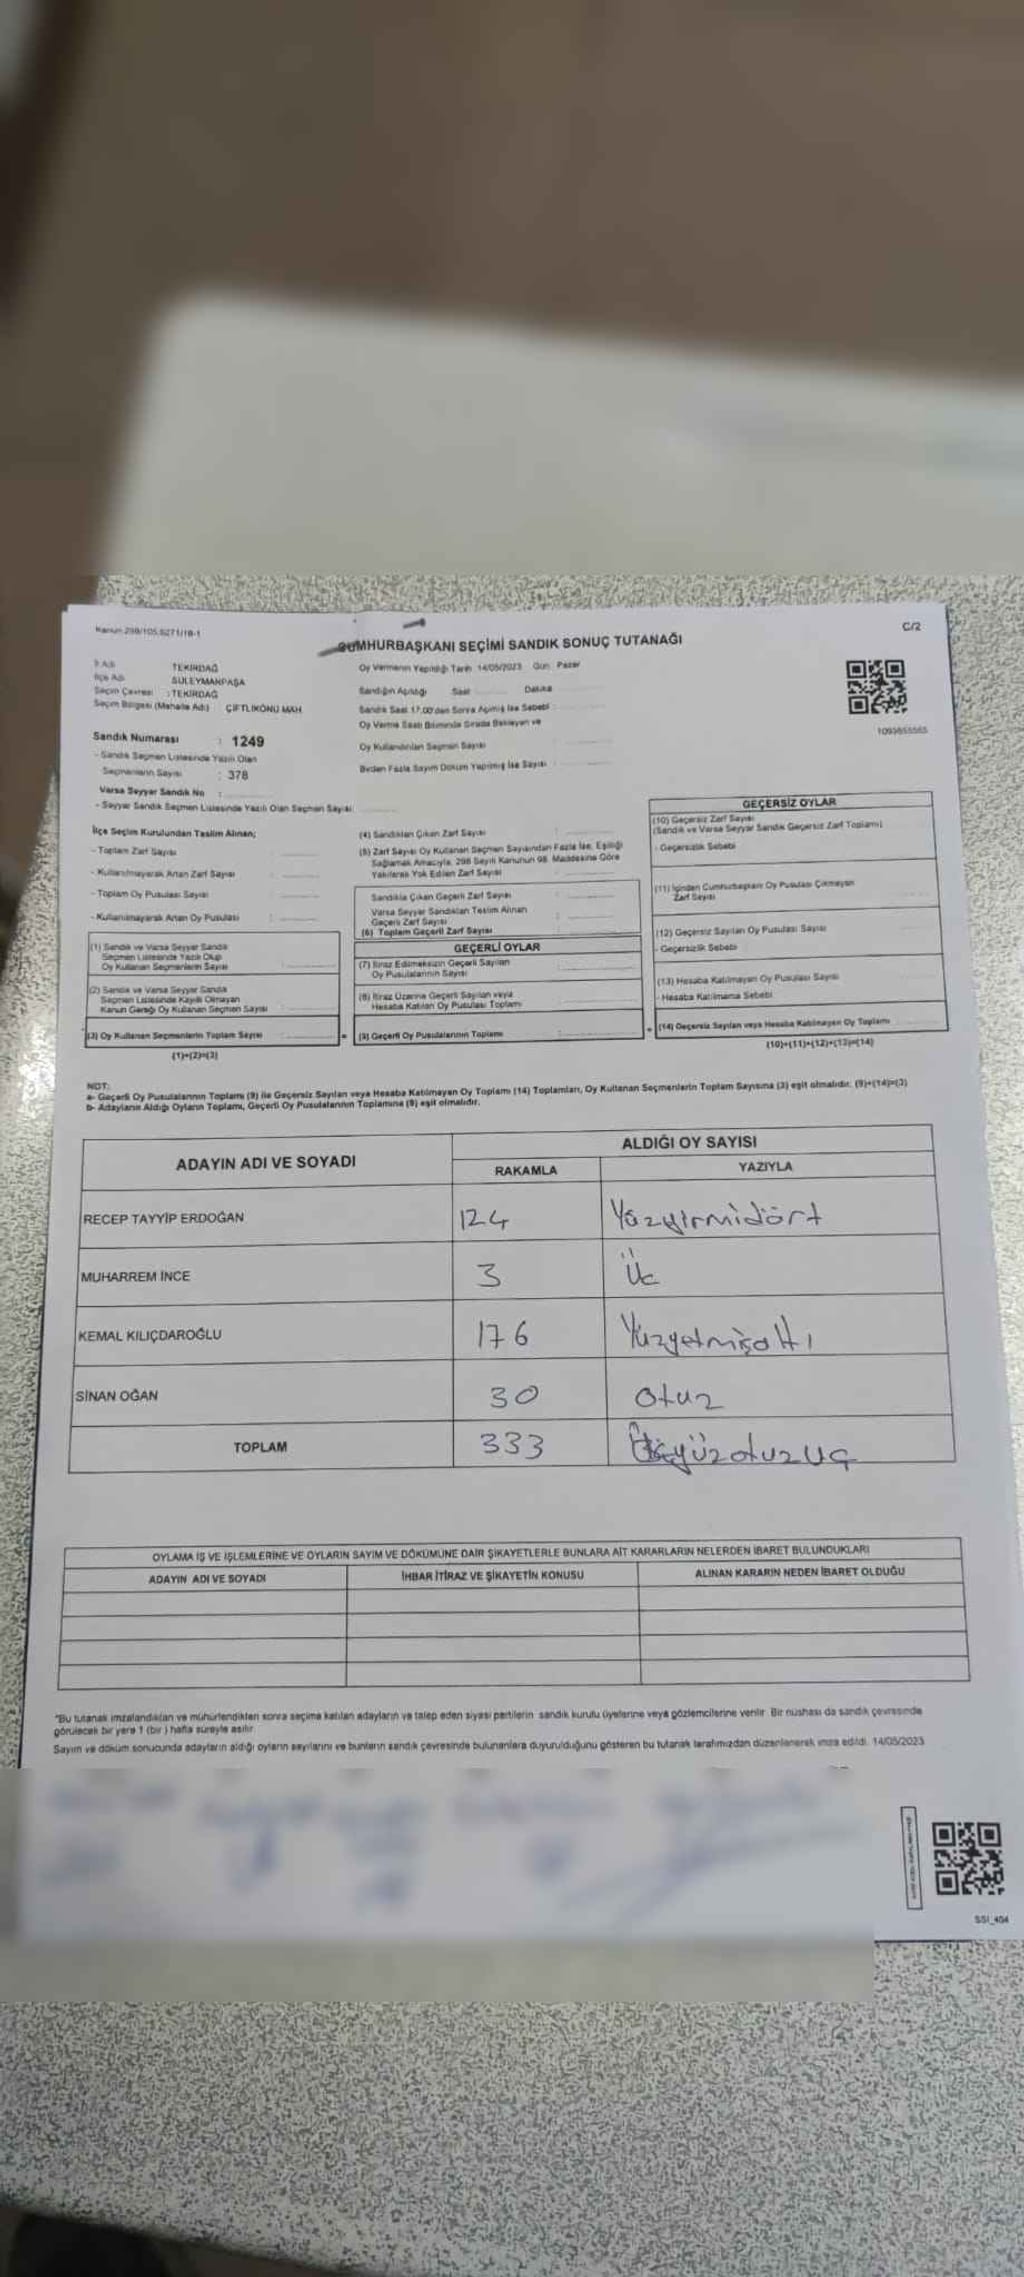 Kanun:298/105,6271/18-1
C/2
CUMHURBAŞKANI SEÇİMİ SANDIK SONUÇ TUTANAĞI
İl Adı TEKİRDAĞ
İlçe Adı SÜLEYMANPAŞA
Seçim Çevresi :TEKİRDAĞ
Seçim Bölgesi (Mahalle Adı) ÇİFTLİKÖNÜ MAH.
Sandık Numarası : 1249
- Sandık Seçmen Listesinde Yazılı Olan
Seçmenlerin Sayısı : 378
Varsa Seyyar Sandık No :
- Seyyar Sandık Seçmen Listesinde Yazılı Olan Seçmen Sayısı
Oy Vermenin Yapıldığı Tarih 14/05/2023 Gün: Pazar
Sandığın Açıldığı Saat Dakika
Sandık Saat 17.00'den Sonra Açılmış İse Sebebi
Oy Verme Saati Bitiminde Sırada Bekleyen ve
Oy Kullandırılan Seçmen Sayısı
Birden Fazla Sayım Döküm Yapılmış İse Sayısı
1093655565
İlçe Seçim Kurulundan Teslim Alınan;
- Toplam Zarf Sayısı
- Kullanılmayarak Artan Zarf Sayısı
- Toplam Oy Pusulası Sayısı
- Kullanılmayarak Artan Oy Pusulası
(1) Sandık ve Varsa Seyyar Sandık
Seçmen Listesinde Yazılı Olup
Oy Kullanan Seçmenlerin Sayısı
(2) Sandık ve Varsa Seyyar Sandık
Seçmen Listesinde Kaydı Olmayan
Kanun Gereği Oy Kullanan Seçmen Sayısı
(3) Oy Kullanan Seçmenlerin Toplam Sayısı
(1)+(2)=(3)
(4) Sandıktan Çıkan Zarf Sayısı
(5) Zarf Sayısı Oy Kullanan Seçmen Sayısından Fazla İse, Eşitliği
Sağlamak Amacıyla, 298 Sayılı Kanunun 98. Maddesine Göre
Yakılarak Yok Edilen Zarf Sayısı
Sandıkta Çıkan Geçerli Zarf Sayısı
Varsa Seyyar Sandıktan Teslim Alınan
Geçerli Zarf Sayısı
(6) Toplam Geçerli Zarf Sayısı
GEÇERLİ OYLAR
(7) İtiraz Edilmeksizin Geçerli Sayılan
Oy Pusulalarının Sayısı
(8) İtiraz Üzerine Geçerli Sayılan veya
Hesaba Katılan Oy Pusulası Toplamı
(9) Geçerli Oy Pusulalarının Toplamı
GEÇERSİZ OYLAR
(10) Geçersiz Zarf Sayısı
(Sandık ve Varsa Seyyar Sandık Geçersiz Zarf Toplamı)
- Geçersizlik Sebebi
(11) İçinden Cumhurbaşkanı Oy Pusulası Çıkmayan
Zarf Sayısı
(12) Geçersiz Sayılan Oy Pusulası Sayısı
- Geçersizlik Sebebi
(13) Hesaba Katılmayan Oy Pusulası Sayısı
- Hesaba Katılmama Sebebi
(14) Geçersiz Sayılan veya Hesaba Katılmayan Oy Toplamı
(10)+(11)+(12)+(13)=(14)
NOT:
a- Geçerli Oy Pusulalarının Toplamı (9) ile Geçersiz Sayılan veya Hesaba Katılmayan Oy Toplamı (14) Toplamları, Oy Kullanan Seçmenlerin Toplam Sayısına (3) eşit olmalıdır. (9)+(14)=(3)
b- Adayların Aldığı Oyların Toplamı, Geçerli Oy Pusulalarının Toplamına (9) eşit olmalıdır.
ADAYIN ADI VE SOYADI
ALDIĞI OY SAYISI
RAKAMLA YAZIYLA
RECEP TAYYİP ERDOĞAN 124 Yüzyirmidört
MUHARREM İNCE 3 Üc
KEMAL KILIÇDAROĞLU 176 Yüzyetmişaltı
SİNAN OĞAN 30 otuz
TOPLAM 333 Üçyüzotuzuç
OYLAMA İŞ VE İŞLEMLERİNE VE OYLARIN SAYIM VE DÖKÜMÜNE DAİR ŞİKAYETLERLE BUNLARA AİT KARARLARIN NELERDEN İBARET BULUNDUKLARI
ADAYIN ADI VE SOYADI İHBAR İTİRAZ VE ŞİKAYETİN KONUSU ALINAN KARARIN NEDEN İBARET OLDUĞU
"Bu tutanak imzalandıktan ve mühürlendikten sonra seçime katılan adayların ve talep eden siyasi partilerin sandık kurulu üyelerine veya gözlemcilerine verilir. Bir nüshası da sandık çevresinde
görülecek bir yere 1 (bir) hafta süreyle asılır.
Sayım ve döküm sonucunda adayların aldığı oyların sayılarını ve bunların sandık çevresinde bulunanlara duyurulduğunu gösteren bu tutanak tarafımızdan düzenlenerek imza edildi. 14/05/2023
SSI_404